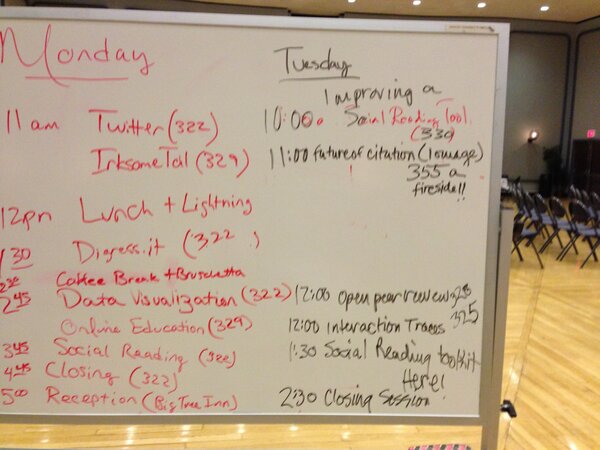 Monday
11 am Twitter (322)
Irksome Tal (329)
12pm Lunch + Lightning
1 30 Digress.it (322)
2 30 Coffee Break + Bruschetta
2 45 Data Visualization (322)
Online Education (329)
3 45 Social Reading (322)
4 45 Closing (322)
5 00 Reception (Big Tree Inn)
Tuesday
Improving a
10:00 Social Reading Tool
(330)
11:00 future of citation (
355 a
fireside!!
12:00 open peer review
12:00 Interaction Traces 325
1:30 Social Reading toolkit
Here!
2:30 Closing Session